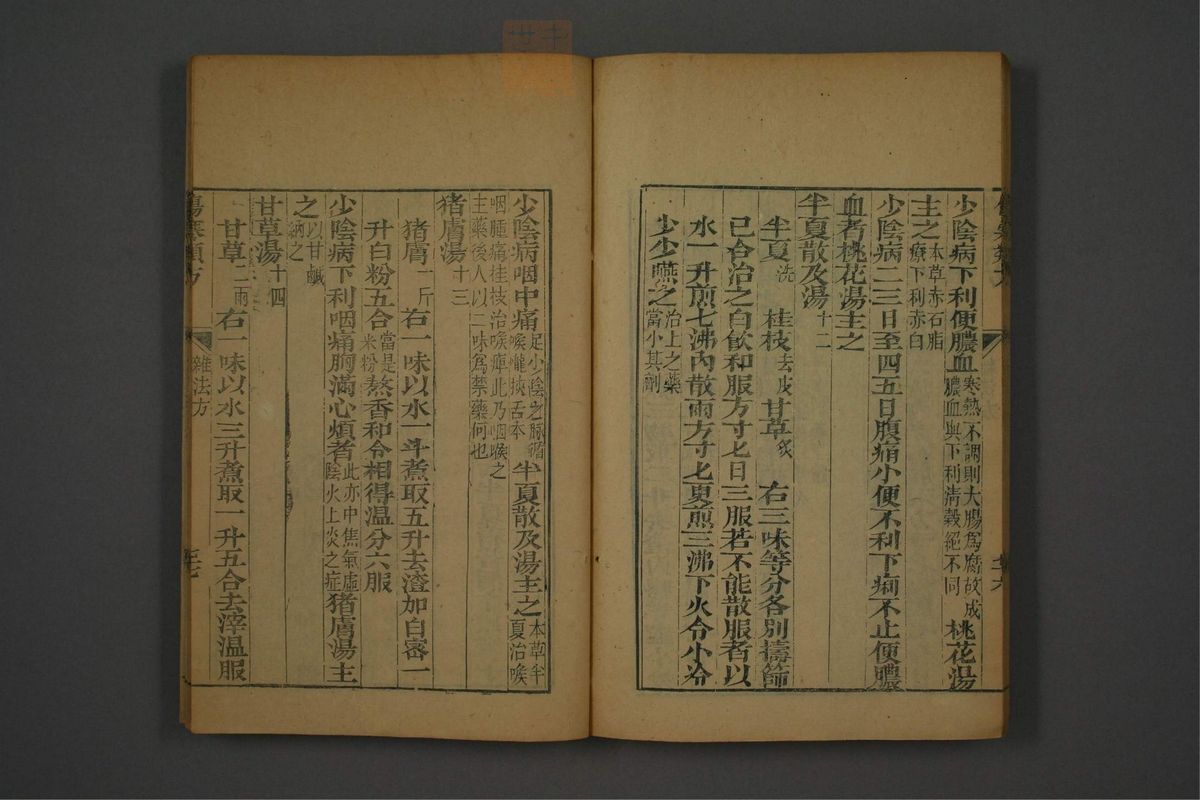 少陰病下利便膿血寒熱不調則大腸爲腐故成膿血與下利淸穀絕不同桃花湯
主之本草赤石脂療下利赤白
少陰病二三日至四五日腹痛小便不利下痢不止便膿
血者桃花湯主之
半夏散及湯十二
半夏洗 桂枝去皮 甘草炙 右三味等分各別擣篩
已合治之白飮和服方寸匕日三服若不能散服者以
水一升煎七沸內散兩方寸匕更煎三沸下火令小冷
少少嚥之治上之藥當小其劑
少陰病咽中痛足少陰之脉循喉嚨挾舌本半夏散及湯主之本草半夏治喉
咽腫痛桂枝治喉痺此乃咽喉之主藥後人以二味爲禁藥何也
猪膚湯十三
猪膚一斤 右一味以水一斗煮取五升去渣加白審一
升白粉五合當是米粉熬香和令相得溫分六服
少陰病下利咽痛胸滿心煩者此亦中焦氣虛陰火上炎之症猪膚湯主
之以甘鹹納之
甘草湯十四
甘草二兩 右一味以水三升煮取一升五合去滓溫服
傷寒類方
雜法方